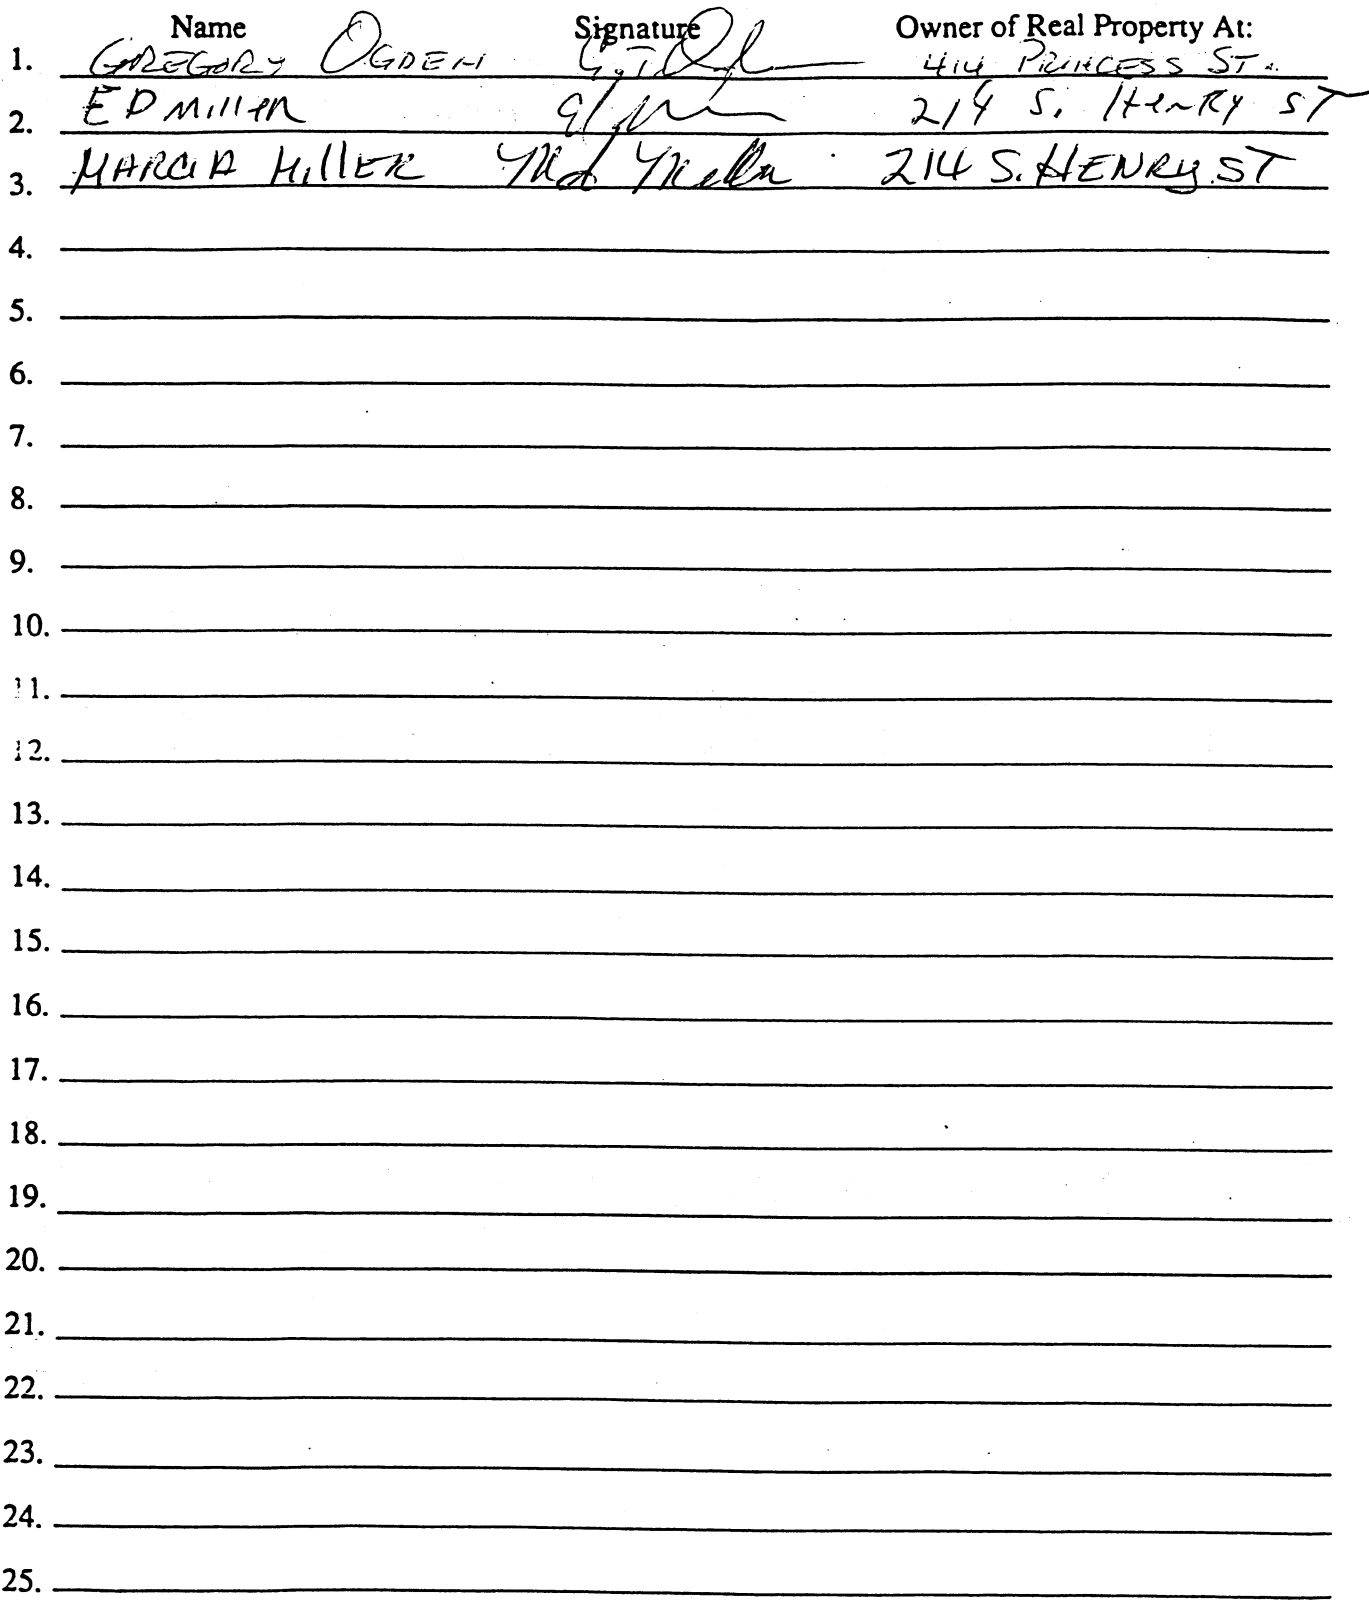 Name Signature Owner of Real Property At:
1. GREGORY OGDEN 414 PRINCESS ST.
2. ED Miller 214 S. Henry ST
3. MARCIA MillER 214 S. HENRY ST
4.
5.
6.
7.
8.
9.
10.
11.
12.
13.
14.
15.
16.
17.
18.
19.
20.
21.
22.
23.
24.
25.